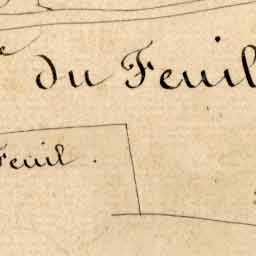 du Feuil
Feuil.